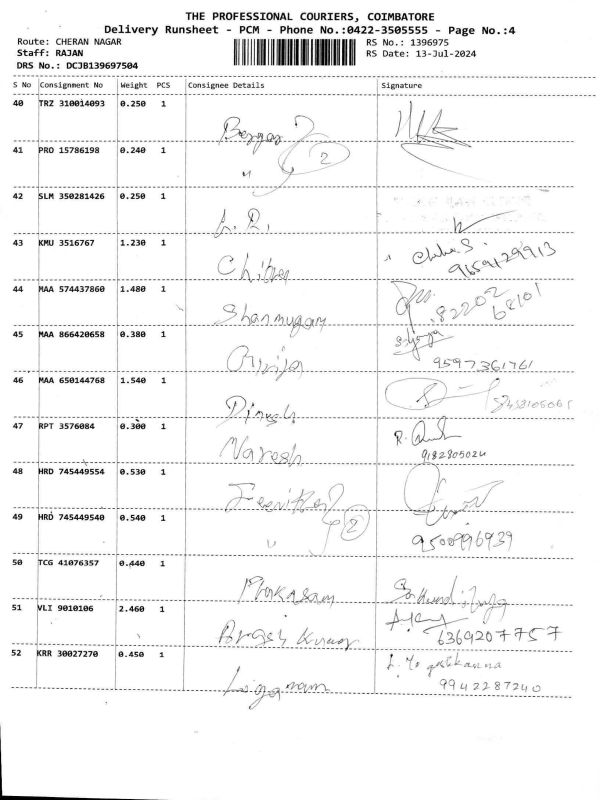 THE PROFESSIONAL COURIERS, COIMBATORE
Delivery Runsheet - PCM - Phone No.:0422-3505555 - Page No.:4
Route: CHERAN NAGAR RS No.: 1396975
Staff: RAJAN RS Date: 13-Jul-2024
DRS No.: DCJB139697504
S No Consignment No Weight PCS Consignee Details Signature
40 TRZ 310014093 0.250 1
41 PRO 15786198 0.240 1
2
"
42 SLM 350281426 0.250 1
43 KMU 3516767 1.230 1
Chitra 9659129913
44 MAA 574437860 1.480 1
Shanmugam 82202 68101
45 MAA 866420658 0.380 1
Girija 9597361761
46 MAA 650144768 1.540 1
Dinesh
47 RPT 3576084 0.300 1
Naresh 9182805024
48 HRD 745449554 0.530 1
49 HRD 745449540 0.540 1
" 2 9500996939
50 TCG 41076357 0.440 1
Prakasam
51 VLI 9010106 2.460 1
Kumar 6369207757
52 KRR 30027270 0.450 1
9942287240